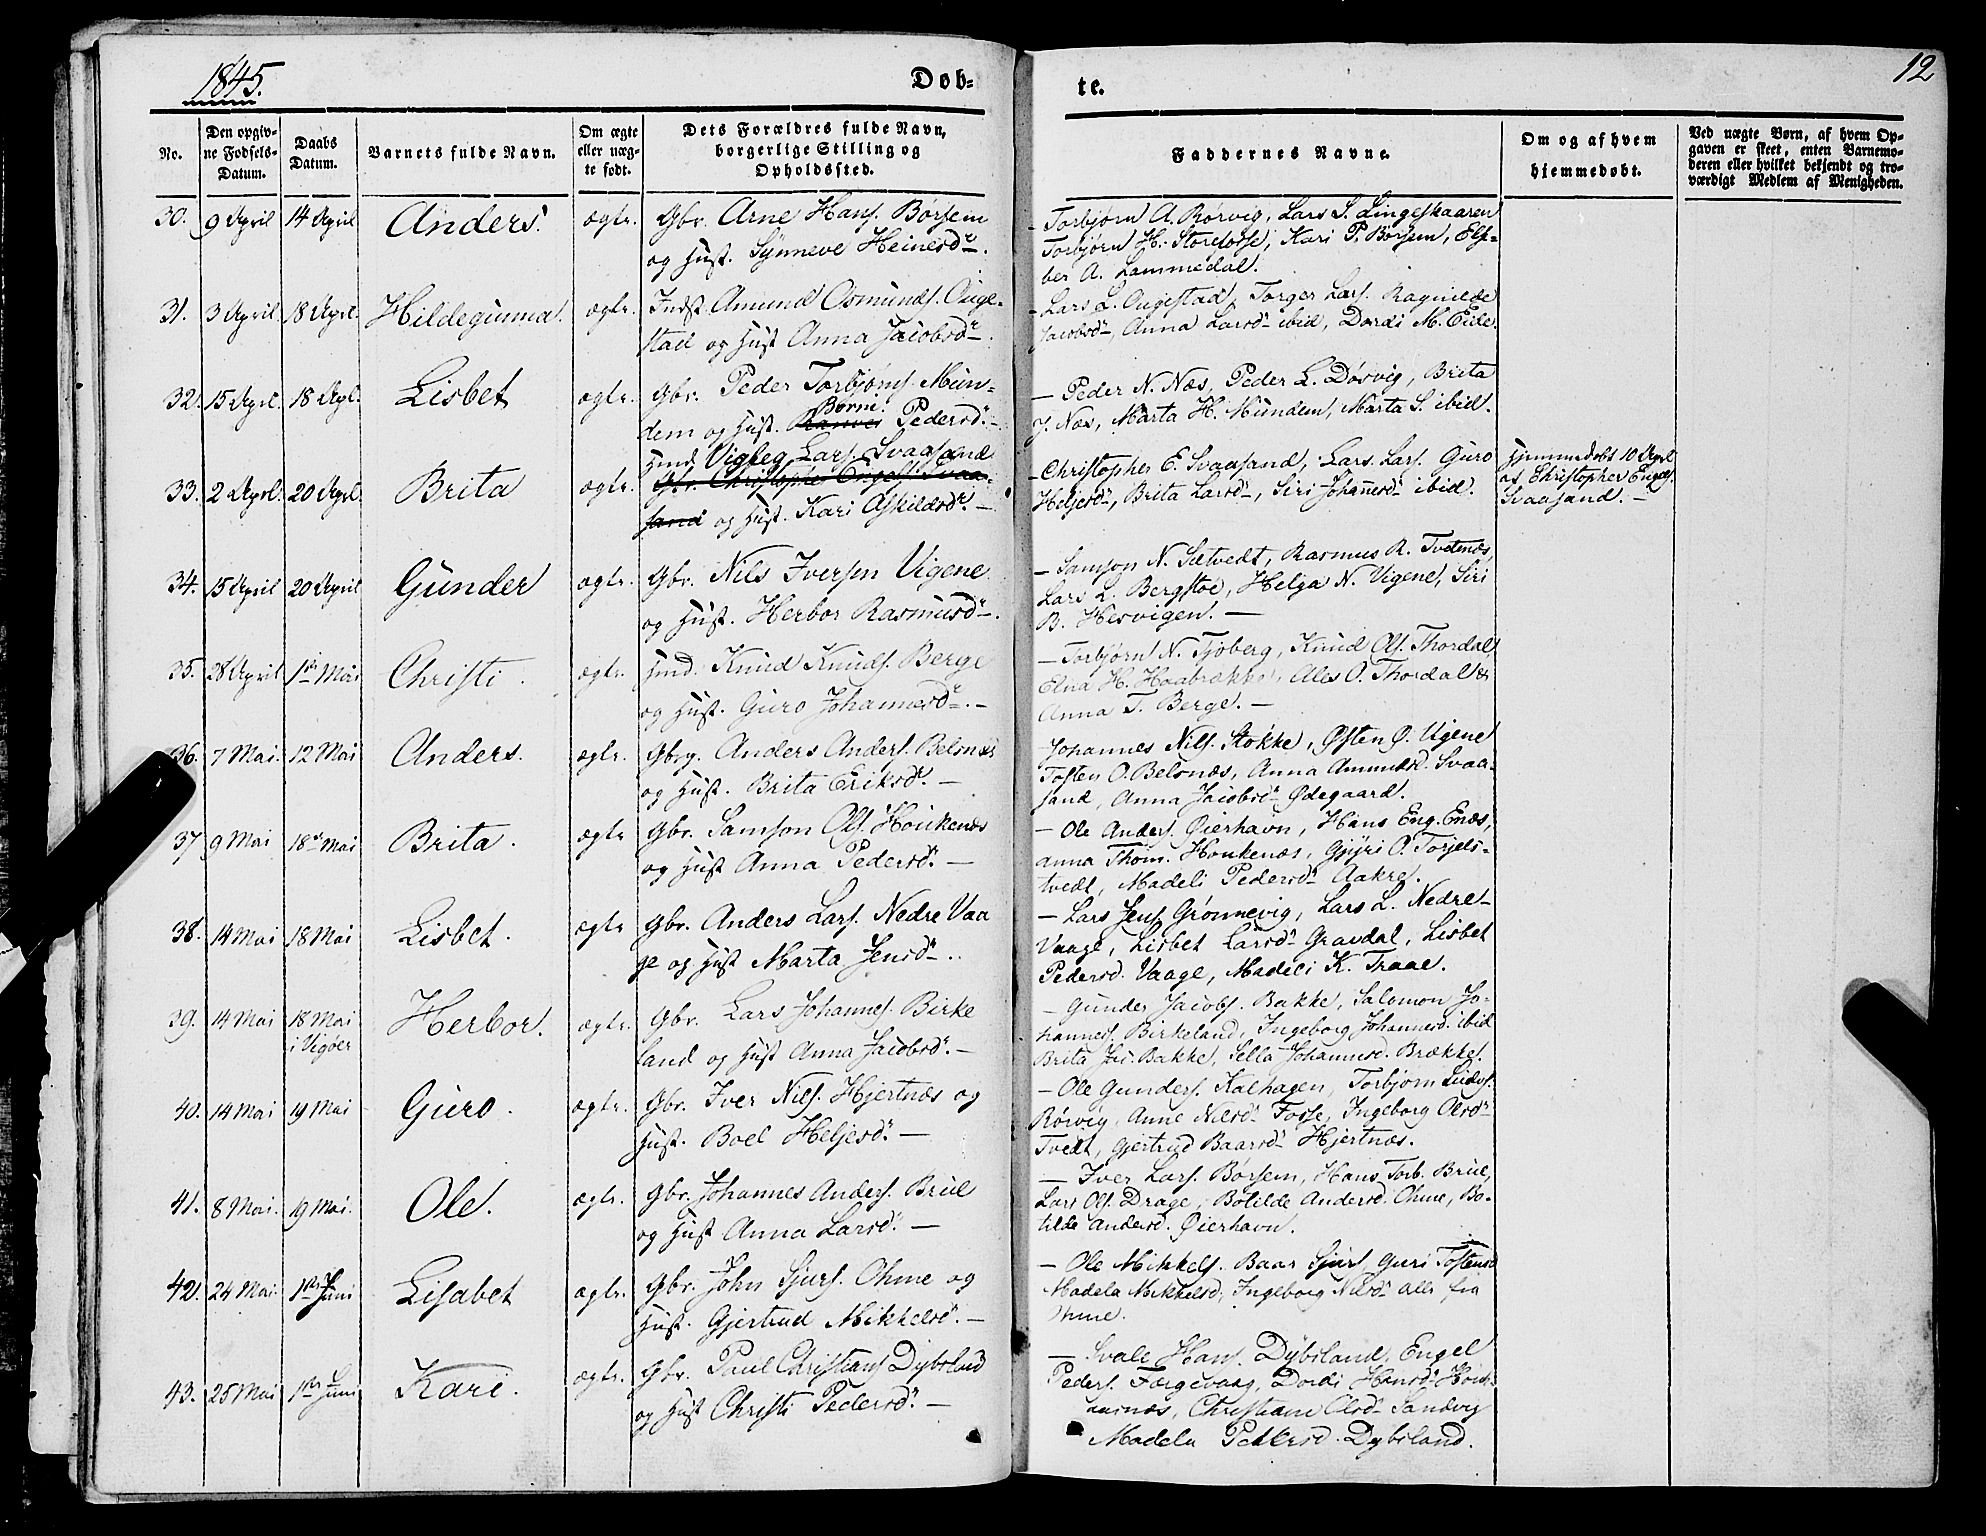 1845.
Døb-
te.
12
No.
Den opgiv-
ne Fødsels-
Datum.
Daabs
Datum.
Barnets fulde Navn.
Om ægte
eller uæg-
te født.
Dets Forældres fulde Navn,
borgerlige Stilling og
Opholdssted.
Faddernes Navne.
Om og af hvem
hjemmedøbt.
Ved uægte Børn, af hvem Op-
gaven er skeet, enten Barnemo-
deren eller hvilket bekjendt og tro-
værdigt Medlem af Menigheden.
30. 9 April 14 April Anders. ægte. Gbr. Arne Hans. Børsem
og Hust. Synneve Heinesd.
- Torbjørn A. Rørvig, Lars S. Lingeskaaren
Torbjørn H. Storefosse, Kari P. Børsem, Els-
ber A. Lammedal.
31. 3 April 18 Apr. Hildegunna. ægte. Indst Amund Osmunds. Ouge-
stad og Hust Anna Jacobsd.
- Lars L. Ougestad, Torger Lars. Ragnilde
Jacobsd, Anna Larsd ibid, Dordi M. Eide.
32. 15 Aprl. 18 Apl. Lisbet ægte. Gbr. Peder Torbjørns. Mun-
dem og Hust. Børni. Pedersd. -
- Peder N. Næs, Peder L. Dørvig, Brita
J. Næs, Marta H. Mundem, Marta S. ibid.
33. 2 Aprl. 20 Apl. Brita ægte. Hmd Vigleg Lars. Svaasand
Gbr. Christopher Engels. Svaa-
sand og Hust. Kari Askildsd. -
- Christopher E. Svaasand, Lars Lars. Guro
Heljesd, Brita Larsd, Siri Johannesd ibid.
Hjemmedøbt 10 Aprl
af Christopher Engels.
Svaasand. -
34. 15 April 20 April Gunder ægte. Gbr. Nils Iversen Vigene
og Hust. Herbor Rasmusd.
- Samson N. Sætvedt, Rasmus R. Tvetenæs,
Lars L. Bergstoe, Helga N. Vigene, Siri
B. Hesvigen. -
35. 28 April 1ste Mai Christi. ægte. Hmd. Knud Knuds. Berge
og Hust. Guro Johannesd. -
- Torbjørn N. Tjoberg, Knud Ols. Thordal
Elna H. Haabrække, Ales O. Thordal &
Anna T. Berge. -
36. 7 Mai. 12 Mai Anders. ægte. Gbrg. Anders Anders. Belsnæs
og Hust. Brita Eriksd. -
Johannes Nils. Stokke, Østen Ø. Vigene
Tosten O. Belsnæs, Anna Ammundsd. Svaa-
sand, Anna Jacobsd Ødegaard.
37 9 Mai 18de Mai Brita. ægte Gbr. Samson Ols. Houkenæs
og Hust Anna Pedersd. -
- Ole Anders. Øierhavn, Hans Eng. Enæs,
Anna Thom. Houkenæs, Gyri O. Torjels-
tvedt, Madeli Pedersd Aakre.
38. 14 Mai 18 Mai Lisbet. ægte Gbr. Anders Lars. Nedre Vaa
ge og Hust Marta Jensd.
- Lars Jens Grønnevig, Lars L. Nedre
Vaage, Lisbet Larsd Gravdal, Lisbet
Pedersd. Vaage, Madeli K. Traae.
39. 14 Mai 18 Mai
i Vigøer Herbor. ægte. Gbr. Lars Johannes. Birke
land og Hust Anna Jacobsd. -
- Gunder Jacobs. Bakke, Salomon Jo-
hannes. Birkeland, Ingeborg Johannesd. ibid
Brita Jac. Bakke, Sella Johannesd. Brække.
40. 14 Mai 19 Mai Guro. ægte. Gbr. Iver Nils. Hjertnæs og
Hust. Boel Heljesd. -
- Ole Gunders. Kalhagen, Torbjørn
Rørvig, Anne Nilsd Fosse, Ingeborg Olsd
Tvedt, Gjertrud Baarsd Hjertnæs.
41. 8 Mai. 19 Mai. Ole. ægte. Gbr. Johannes Anders. Brue
og Hust Anna Larsd. -
- Iver Lars. Børsem, Hans Torb. Brue,
Lars Ols. Drage, Botilde Andersd. Ohme, Bo-
tilde Andersd. Øierhavn.
42. 24 Mai. 1ste Juni Lisabet ægte. Gbr. John Sjurs. Ohme og
Hust. Gjertrud Mikkelsd. -
- Ole Mikkels. Baar Sjurs Guri Tostensd
Madela Mikkelsd, Ingeborg Nilsd alle fra
Ohme.
43. 25 Mai 1ste Juni Kari. ægte. Gbr. Paul Christians Dybslnd
og Hust Christi Pedersd. -
- Svale Hans. Dybsland, Engel
Peders. Færgevaag, Dordi Hansd
Christiane Olsd Sandvig
Madela Pedersd. Dybsland.